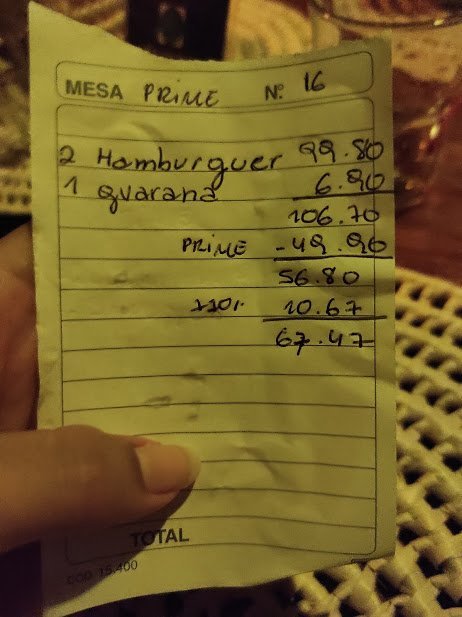 MESA PRIME Nº 16
2 Hamburguer 99.80
1 guarana 6.90
106.70
PRIME -49.90
56.80
+10% 10.67
67.47
TOTAL
COD 15.400